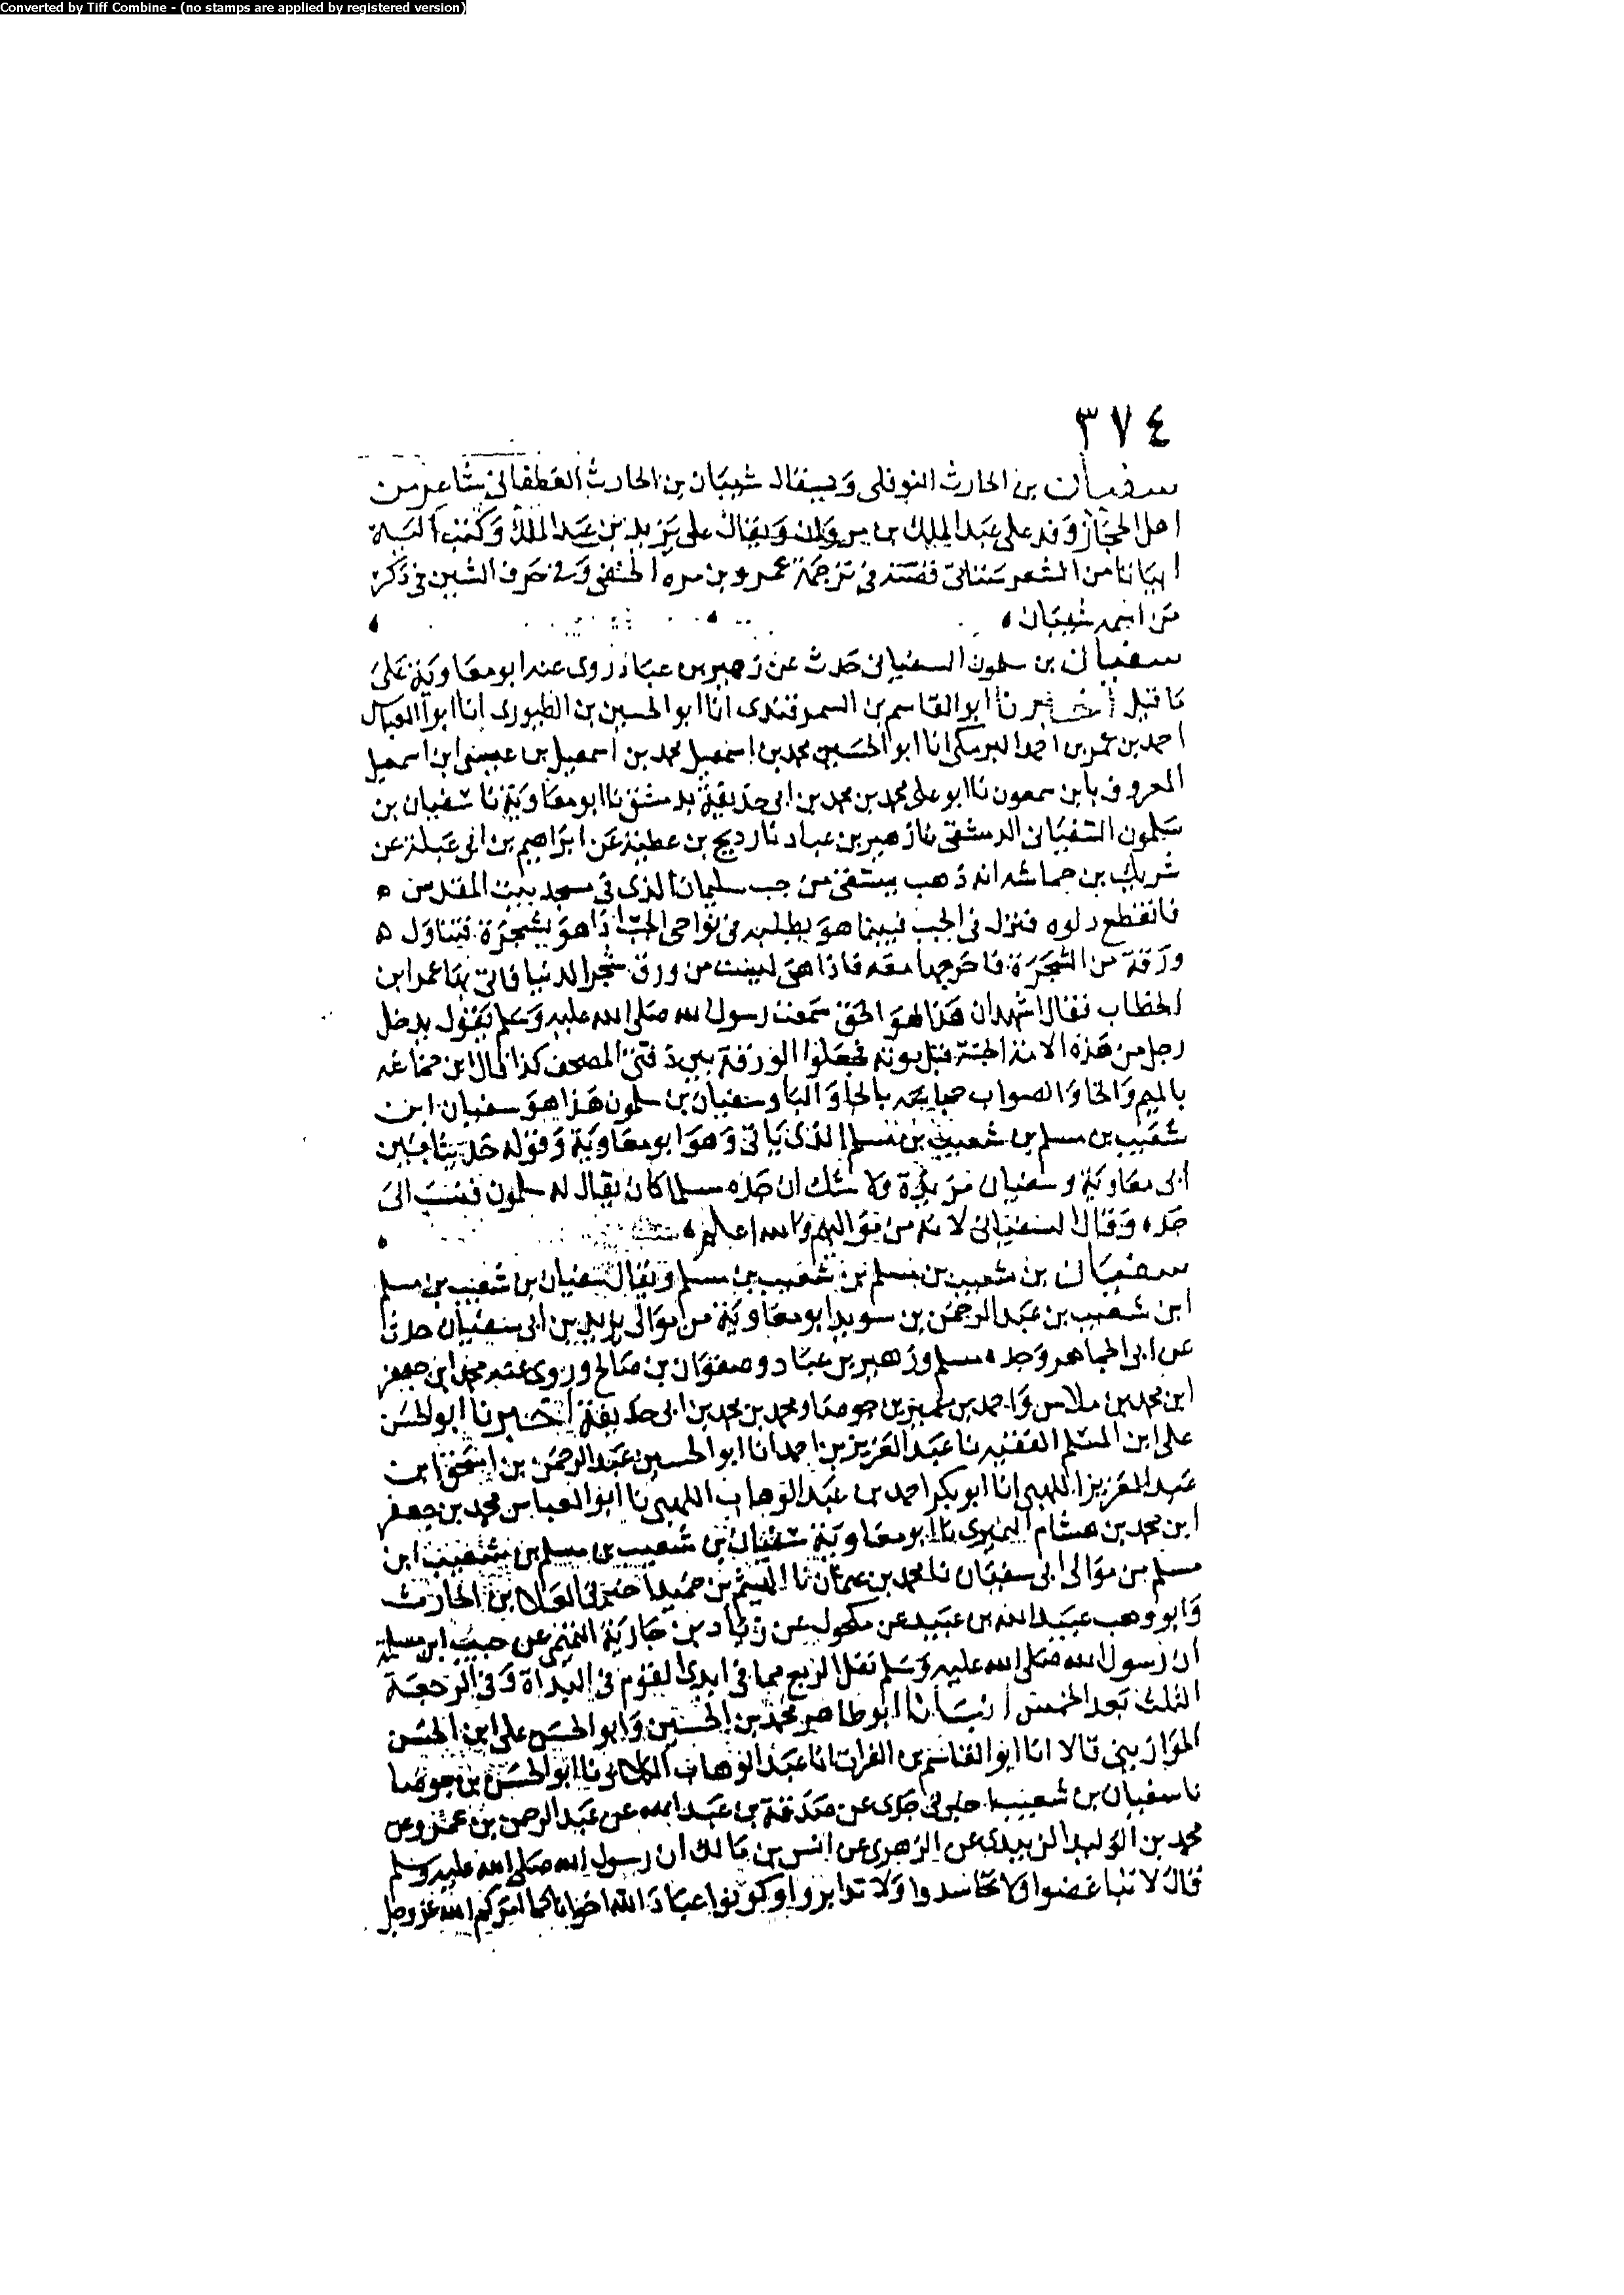 Converted by Tiff Combine - (no stamps are applied by registered version)
٣٧٤
سفيان بن الحارث النوفلى ويقال شيبان بن الحارث الغطفانى شاعر من
اهل الحجاز وفد على عبد الملك بن مروان ويقال على يزيد بن عبد الملك وكتب اليه
ابياتا من الشعر ستاتى قصته فى ترجمة عمرو بن مره الحنفى وفى حرف الشين فى ذكر
من اسمه شيبان
سفيان بن سلمون السفيانى حدث عن زهير بن عباد روى عنه ابو معاوية على
ما قيل اخبرنا ابو القاسم بن السمرقندى انا ابو الحسين بن الطيورى انا ابو العباس
احمد بن عمر بن احمد البرمكى انا ابو الحسين محمد بن اسمعيل محمد بن اسمعيل بن عيسى ابن اسمعيل
المعروف بابن سمعون نا ابو على محمد بن محمد بن ابى حذيفة بدمشق نا ابو معاوية نا سفيان بن
سلمون السفيانى الدمشقى نا زهير بن عباد نا رديح بن عطية عن ابراهيم بن ابى عبلة عن
شريك بن حماشه انه ذهب يستقى من جب سليمان الذى فى مسجد بيت المقدس
فانقطع دلوه فنزل فى الجب فبينما هو يطلبه فى نواحى الجب اذا هو بشجرة فتناول
ورقة من الشجرة فاخرجها معه فاذا هى ليست من ورق شجر الدنيا فاتى بها عمر ابن
الخطاب فقال اشهد ان هذا لهو الحق سمعت رسول الله صلى الله عليه وسلم يقول يدخل
رجل من هذه الامة الجنة قبل موته فجعلوا الورقة بين دفتى المصحف كذا قال ابن خماشه
بالميم والخا والصواب حباشه بالحا والبا وسفيان بن سلمون هذا هو سفيان ابن
شعيب بن مسلم بن شعيب بن مسلم الذى ياتى وهو ابو معاوية وقوله حدثنا بين
ابى معاوية وسفيان مزيدة ولا شك ان جده مسلما كان يقال له سلمون فنسب الى
جده وقال السفيانى لانه من مواليهم والله اعلم
سفيان بن شعيب بن مسلم بن شعيب بن مسلم ويقال سفيان بن شعيب بن مسلم
ابن شعيب بن عبد الرحمن بن سويد ابو معاوية من موالى يزيد بن ابى سفيان حدثنا
عن ابى الجماهر وجده مسلم وزهير بن عباد وصفوان بن صالح وروى عنه محمد ابن جعفر
ابن محمد بن ملاس واحمد بن عمير بن جوصا ومحمد بن محمد بن ابى حذيفة اخبرنا ابو الحسن
على ابن المسلم الفقيه نا عبد العزيز بن احمد انا ابو الحسين عبد الرحمن بن اسحق ابن
عبد العزيز اللهبى انا ابو بكر احمد بن عبد الوهاب اللهبى نا ابو العباس محمد بن جعفر
ابن محمد بن هشام النميرى نا ابو معاوية سفيان بن شعيب بن مسلم بن شعيب ابن
مسلم من موالى ابى سفيان نا محمد بن عثمان نا الهيثم بن حميد اخبرنى العلا بن الحارث
وابو وهب عبيد الله بن عبيد عن مكحول عن زياد بن جارية التميمى عن حبيب ابن مسلمة
ان رسول الله صلى الله عليه وسلم نفل الربع مما فى ايدى القوم فى البداة وفى الرجعة
الثلث بعد الخمس انبانا ابو طاهر محمد بن الحسين وابو الحسن على ابن الحسن
الموازينى قالا انا ابو القاسم بن الفرات انا عبد الوهاب الكلابى نا ابو الحسن بن جوصا
نا سفيان بن شعيب حدثنى جدى عن صدقة بن عبد الله عن عبد الرحمن بن عمرو عن
محمد بن الوليد الزبيدى عن الزهرى عن انس بن مالك ان رسول الله صلى الله عليه وسلم
قال لا تباغضوا ولا تحاسدوا ولا تدابروا وكونوا عباد الله اخوانا كما امركم الله عز وجل